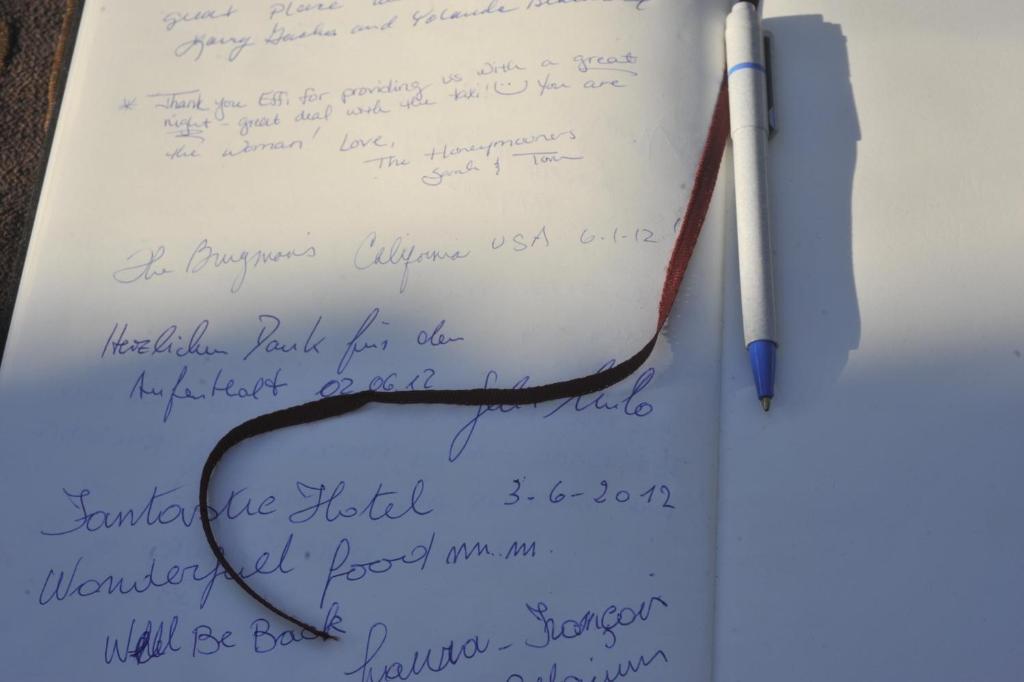 great place
and Yolande
* Thank you Effi for providing us with a great
night - great deal with the taxi! You are
the woman! Love,
The Honeymooners
Sarah & Tom
The Brugman's California USA 6-1-12
Herzlichen Dank für den
Aufenthalt 02.06.12
Fantastic Hotel 3-6-2012
Wonderfuel food mm.m.
Will Be Back
François
Belgium